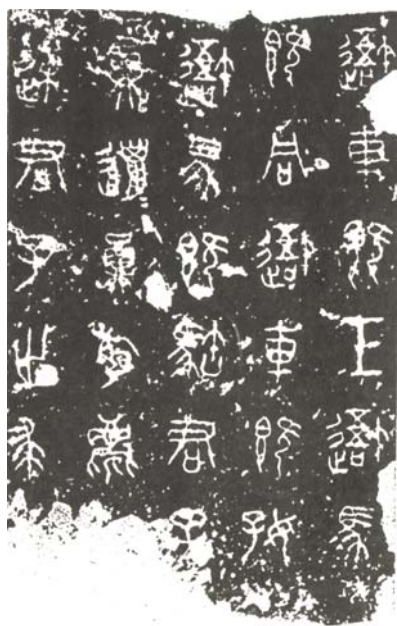 吾車既工吾馬
既同吾車既好
吾馬既君子
員邋員斿麀
速君子之求